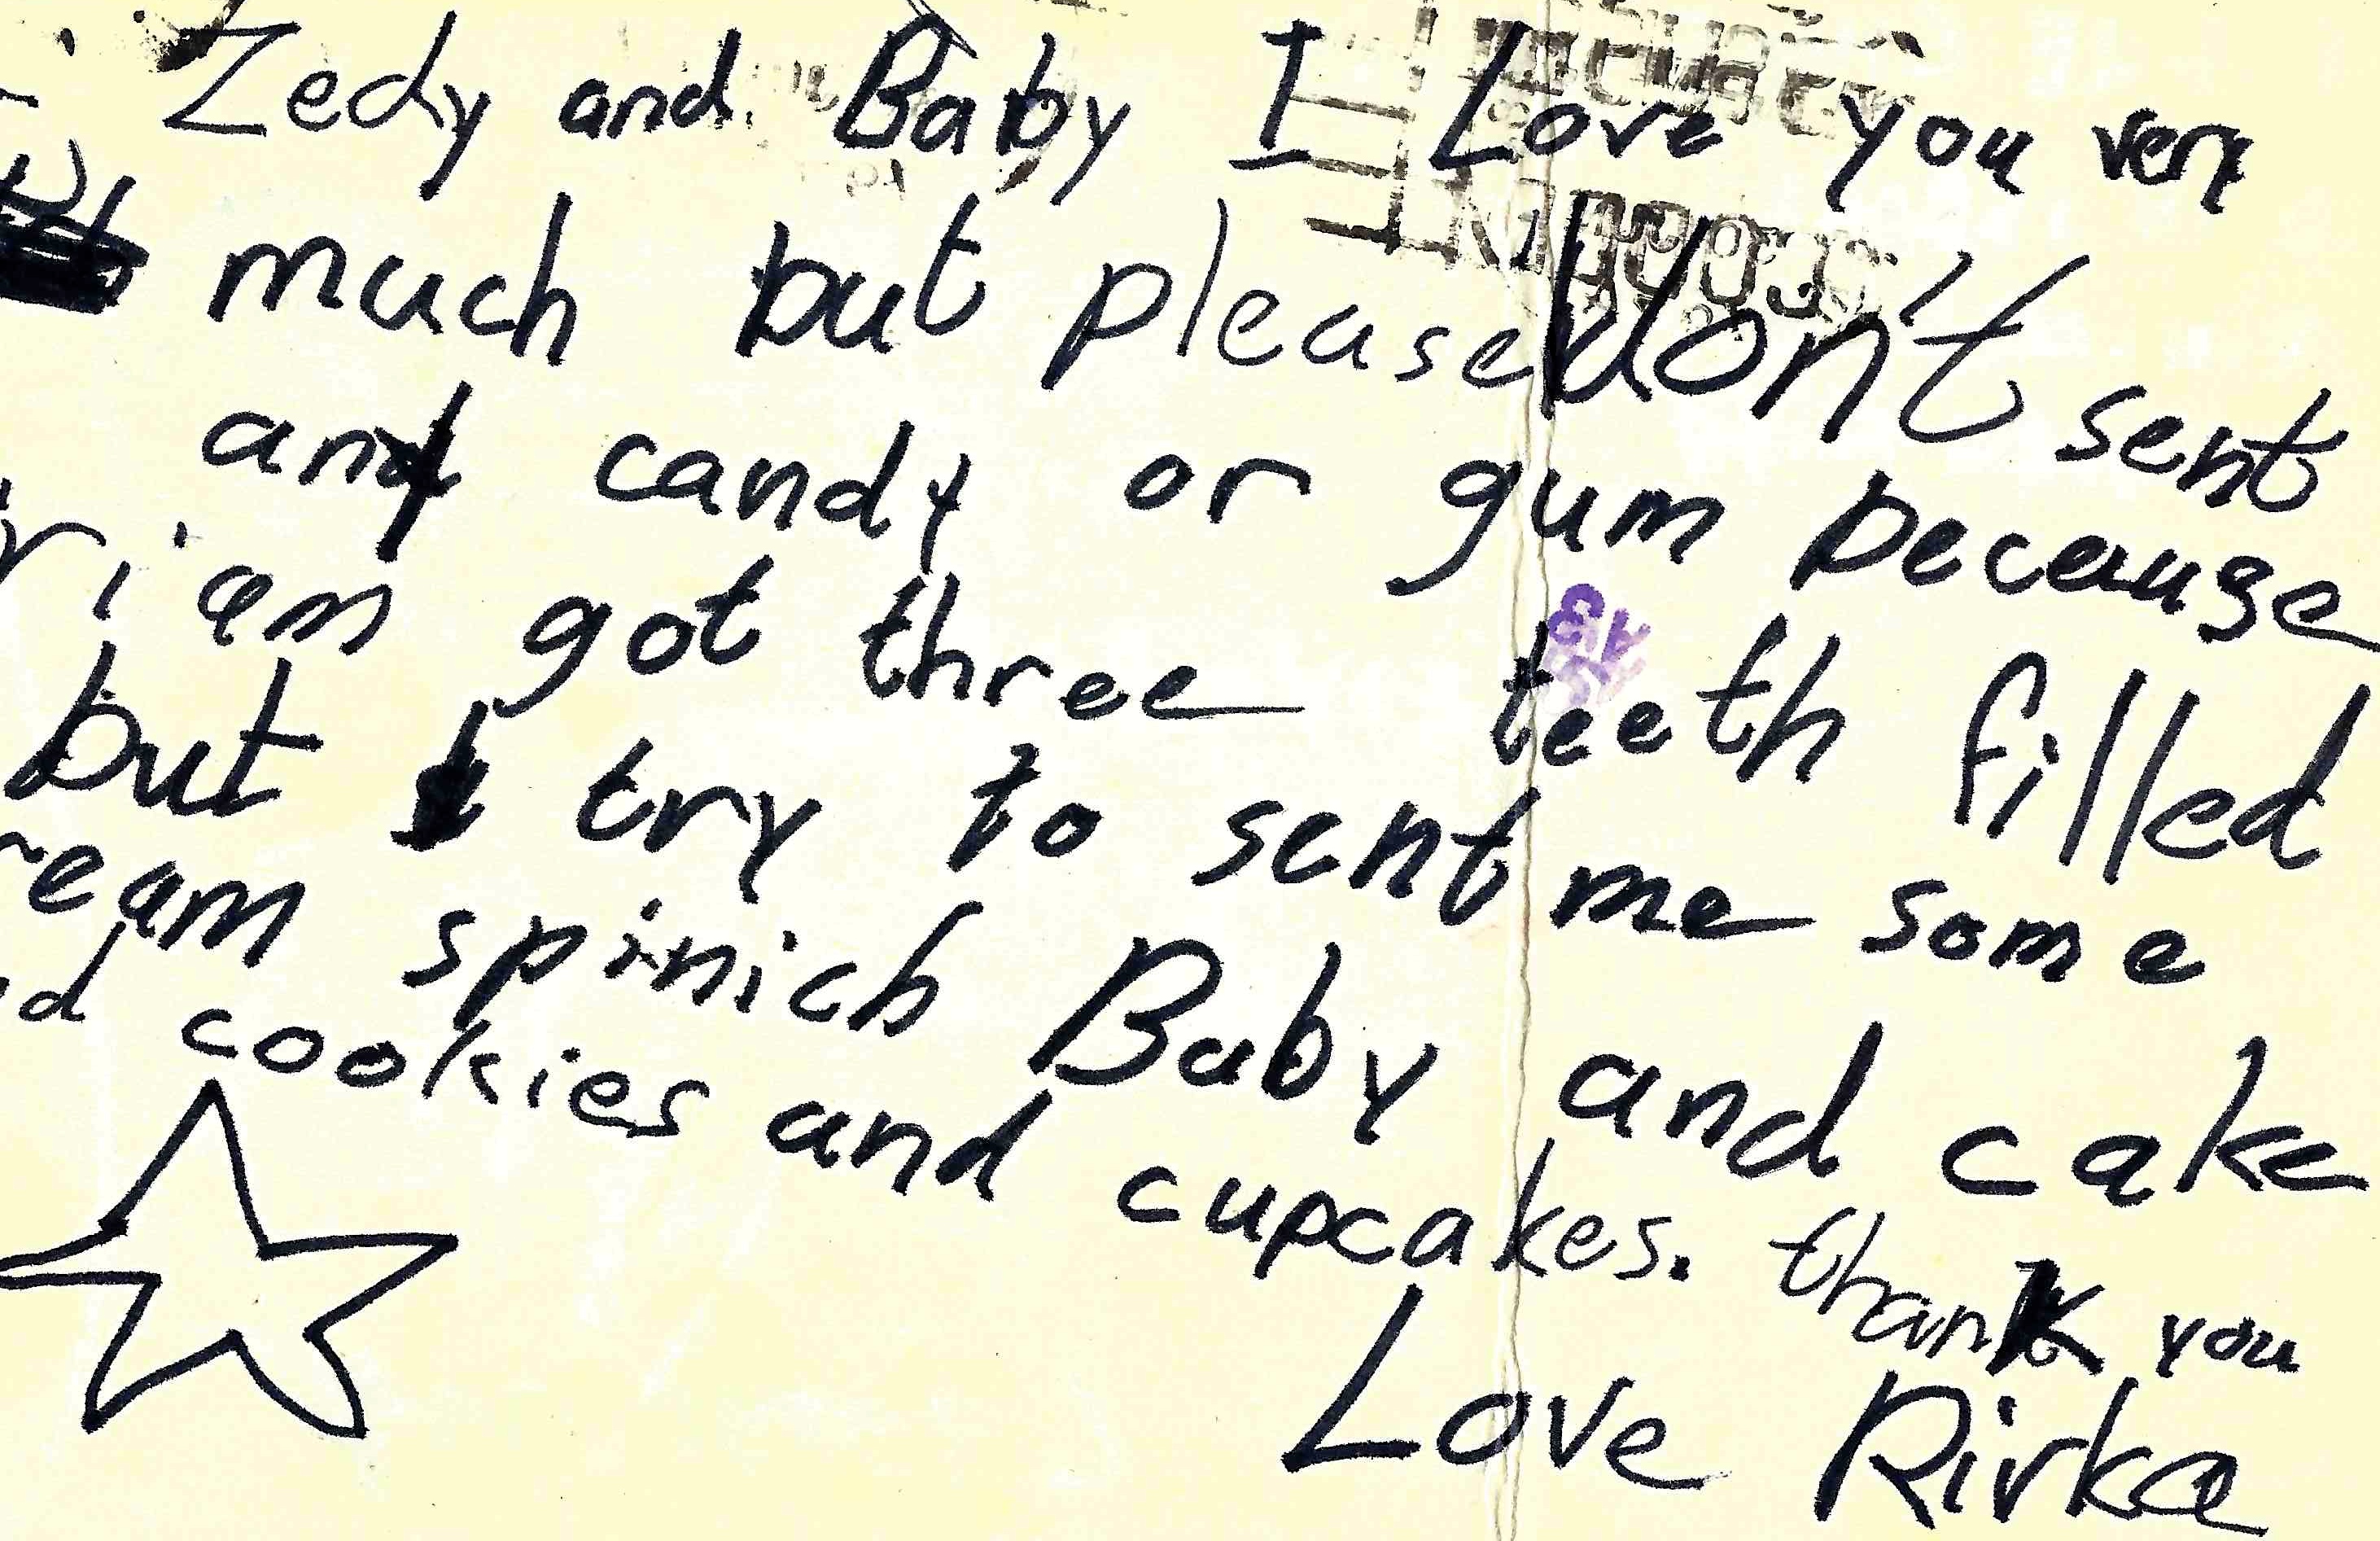 Zedy and Baby I Love you very
much but please don't sent
any candy or gum because
riam got three teeth filled
but try to sent me some
ream spinich Baby and cake
d cookies and cupcakes. thank you
Love Rivka